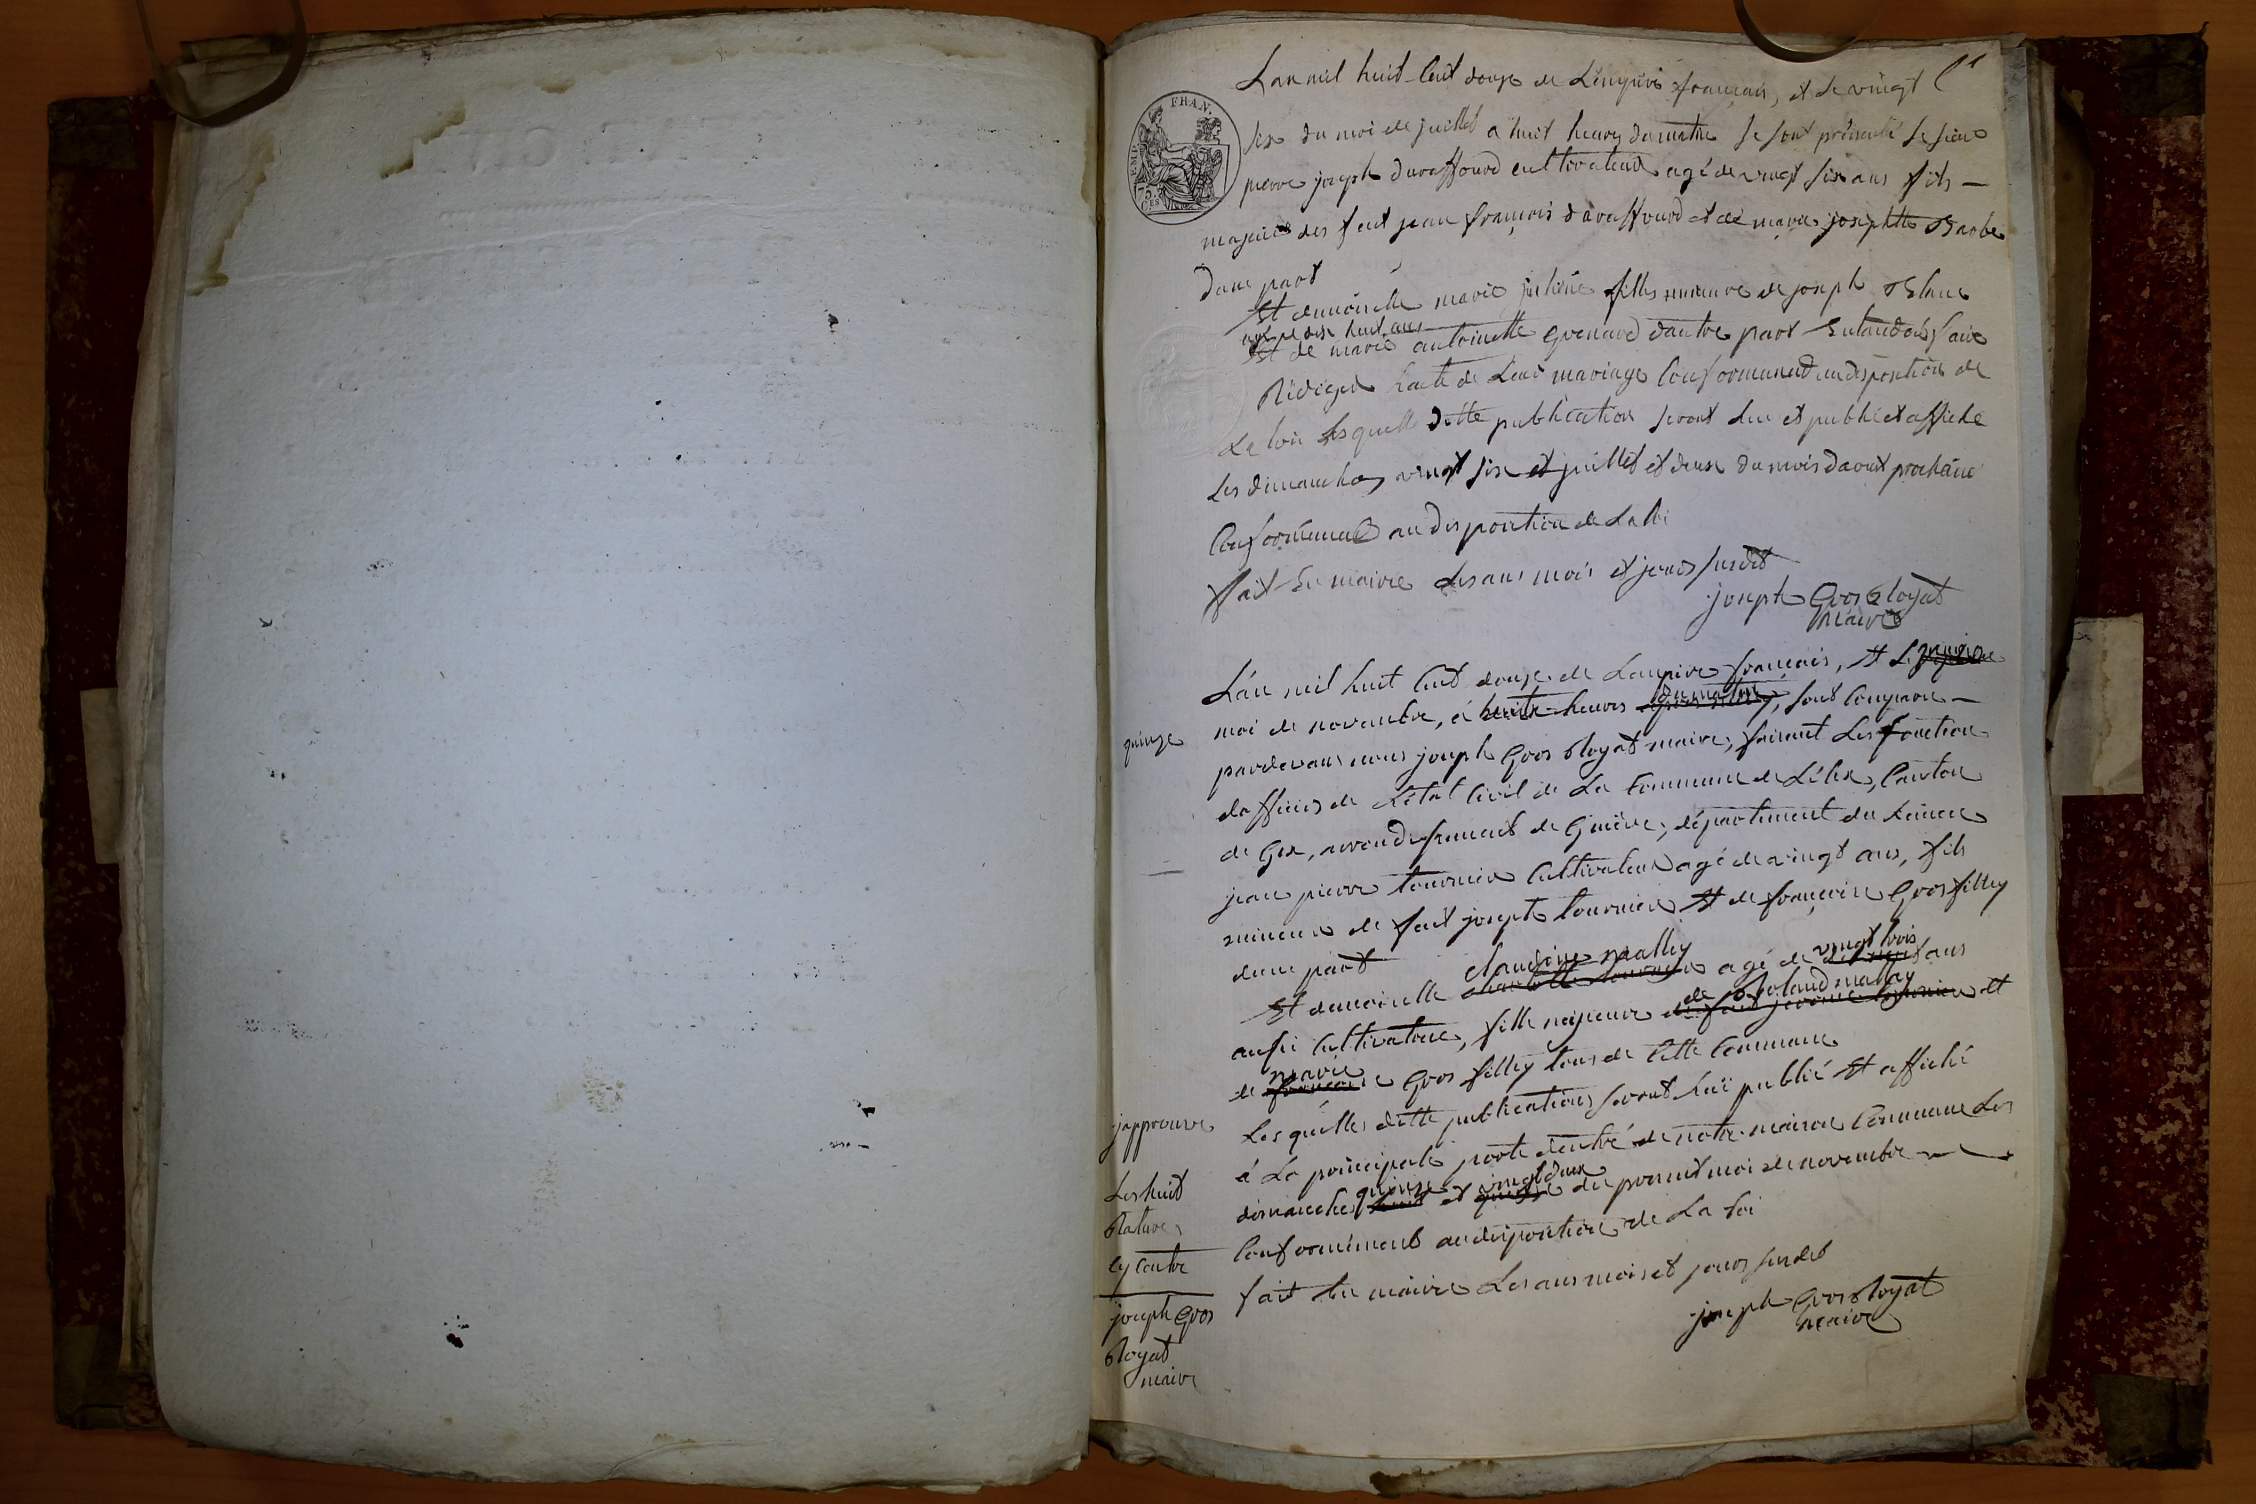 L'an mil huit cent douze de L'empire français, et le vingt
six du moi de juillet a huit heures du matin se sont présenté le sieur
pierre joseph duraffourd cultivateur agé de vingt six ans fils
majeur des feut jean françois duraffourd et de marie josephtte Barbe
dune part
Et demoiselle marie juliene fille mineure de joseph Blanc
agé de dix huit ans
Et de marie antoinette grenard dautre part Entandois faire
Rédiger Lacte de Leur mariage Conformement au disposition de
La loi Lesquelle ditte publication seront lue et publié et affiché
Les dimanches vingt six et juillet et deux du mois daout prochaine
Conformement au disposition de La loi
fait En mairie Les ans mois et jours susdit
joseph Gros Royat
maire
L'an mil huit cent douze de Lempire français, et Le
quinze
du matin
moi de novembre, à huite heures, sont comparu
pardevant nous joseph Gros Royat maire, faisant Les fonction
dofficier de L'état Civil de La Commune de Lélex, Canton
de Gex, arrondissement de Genève, département du Léman
jean pierre tournier Cultivateur agé de vingt ans, fils
mineur de feut joseph tournier Et de françoise Gros filley
dune part
claudine malley
vingt trois
Et demoiselle agé de ans
de Roland malley
aussi Cultivatrice, fille majeure de feut et
marie
de françoise Gros filley tous de Cette Commune
Lesquelles ditte publications seront Lue publié Et affiché
à La principale porte dentré de notre maison Commune Les
quinze vingt deux
dimanches huit et quinze du present moi de novembre
Conformément au disposition de La loi
fait En mairie Les ans mois et jours susdit
joseph Gros Royat
maire
japprouve
Les huit
Rature
cy contre
joseph Gros
Royat
maire
EMP. FRAN.
75.
CES